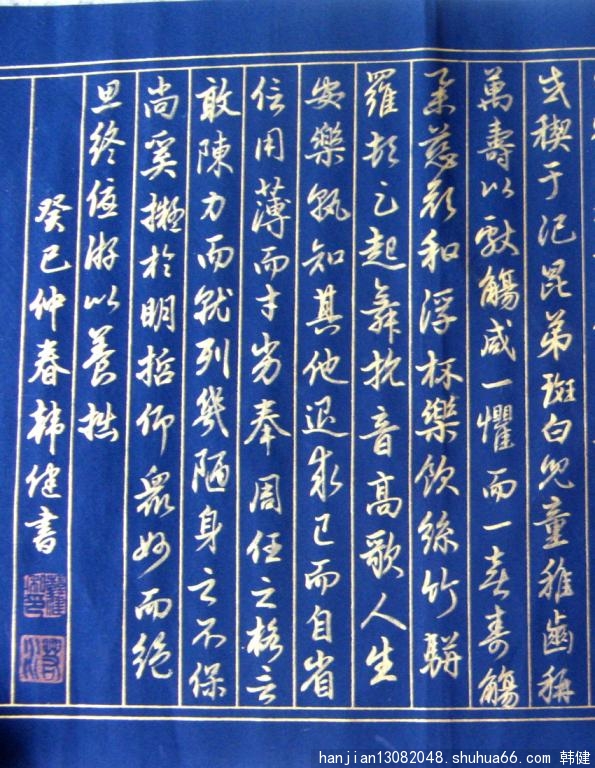 或禊于汜昆弟斑白兒童稚齒稱
萬壽以獻觴咸一懼而一喜壽觴
舉慈顏和浮杯樂飲絲竹駢
羅頓足起舞抗音高歌人生
安樂孰知其他退求己而自省
信用薄而才劣奉周任之格言
敢陳力而就列幾陋身之不保
尚奚擬於明哲仰眾妙而絕
思終優游以養拙
癸巳仲春韓健書
hanjian13082048.shuhua66.com 韩健